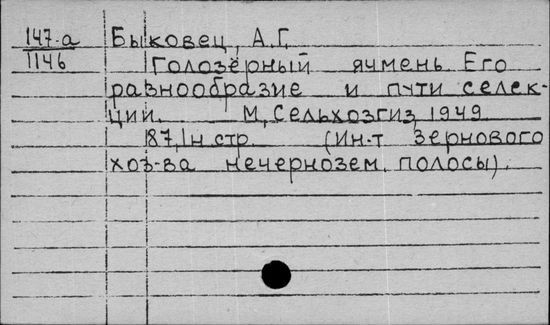 147-а Быковец, А.Г.
1146
Голозёрный ячмень Его
разнообразие и пути селек-
ции. М, Сельхозгиз, 1949
187, 1н. стр. (Ин-т зернового
хоз-ва нечернозем. полосы).